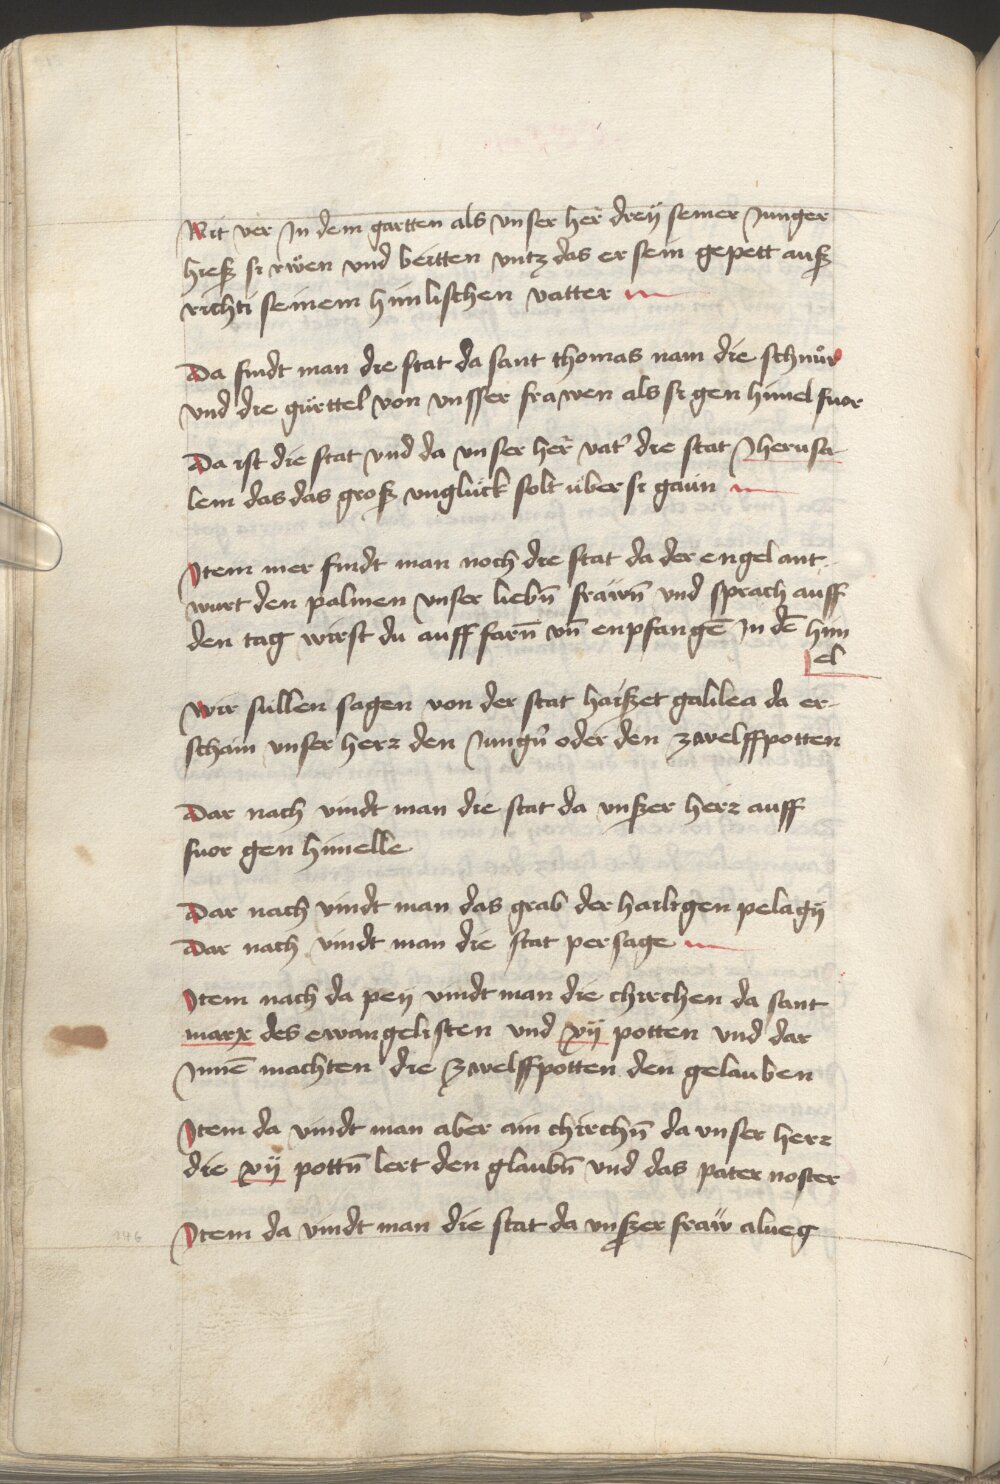 Nit ver In dem gartten als vnser her̄ dreÿ seiner Junger
hiesz si rwͦen vnd beitten vntz das er sein gepett ausz
richti seinem himlischen vatter
Da findt man die stat da sant thomas nam die schnuͦr
vnd die gürttel von vnsser frawen als si gen himel fuor
Da ist die stat vnd da vnser her̄ vat' die stat Jherusa
lem das das grosz vnglück solt über si gaün
Item mer findt man noch die stat da der engel ant
wurt den palmen vnser liebn̄ frawn̄ vnd sprach auff
den tag wirst du auff farn̄ vn̄ enpfangē In dē him
el
Wir süllen sagen von der stat haiszet galilea da er
schain vnser herr den Jungn̄ oder den zwelffpotten
Dar nach vindt man die stat da vnszer herr auff
fuor gen himelle
Dar nach vindt man das grab der hailigen pelagÿ
Dar nach vindt man die stat persage
Item nach da peÿ vindt man die chirchen da sant
marx des ewangelisten vnd xij potten vnd dar
Jnnē machten die zwelffpotten den gelauben
Item da vindt man aber ain chirchn̄ da vnser herr
die xij pottn̄ lert den glaubn̄ vnd das pater noster
Item da vindt man die stat da vnszer fraw alweg
146